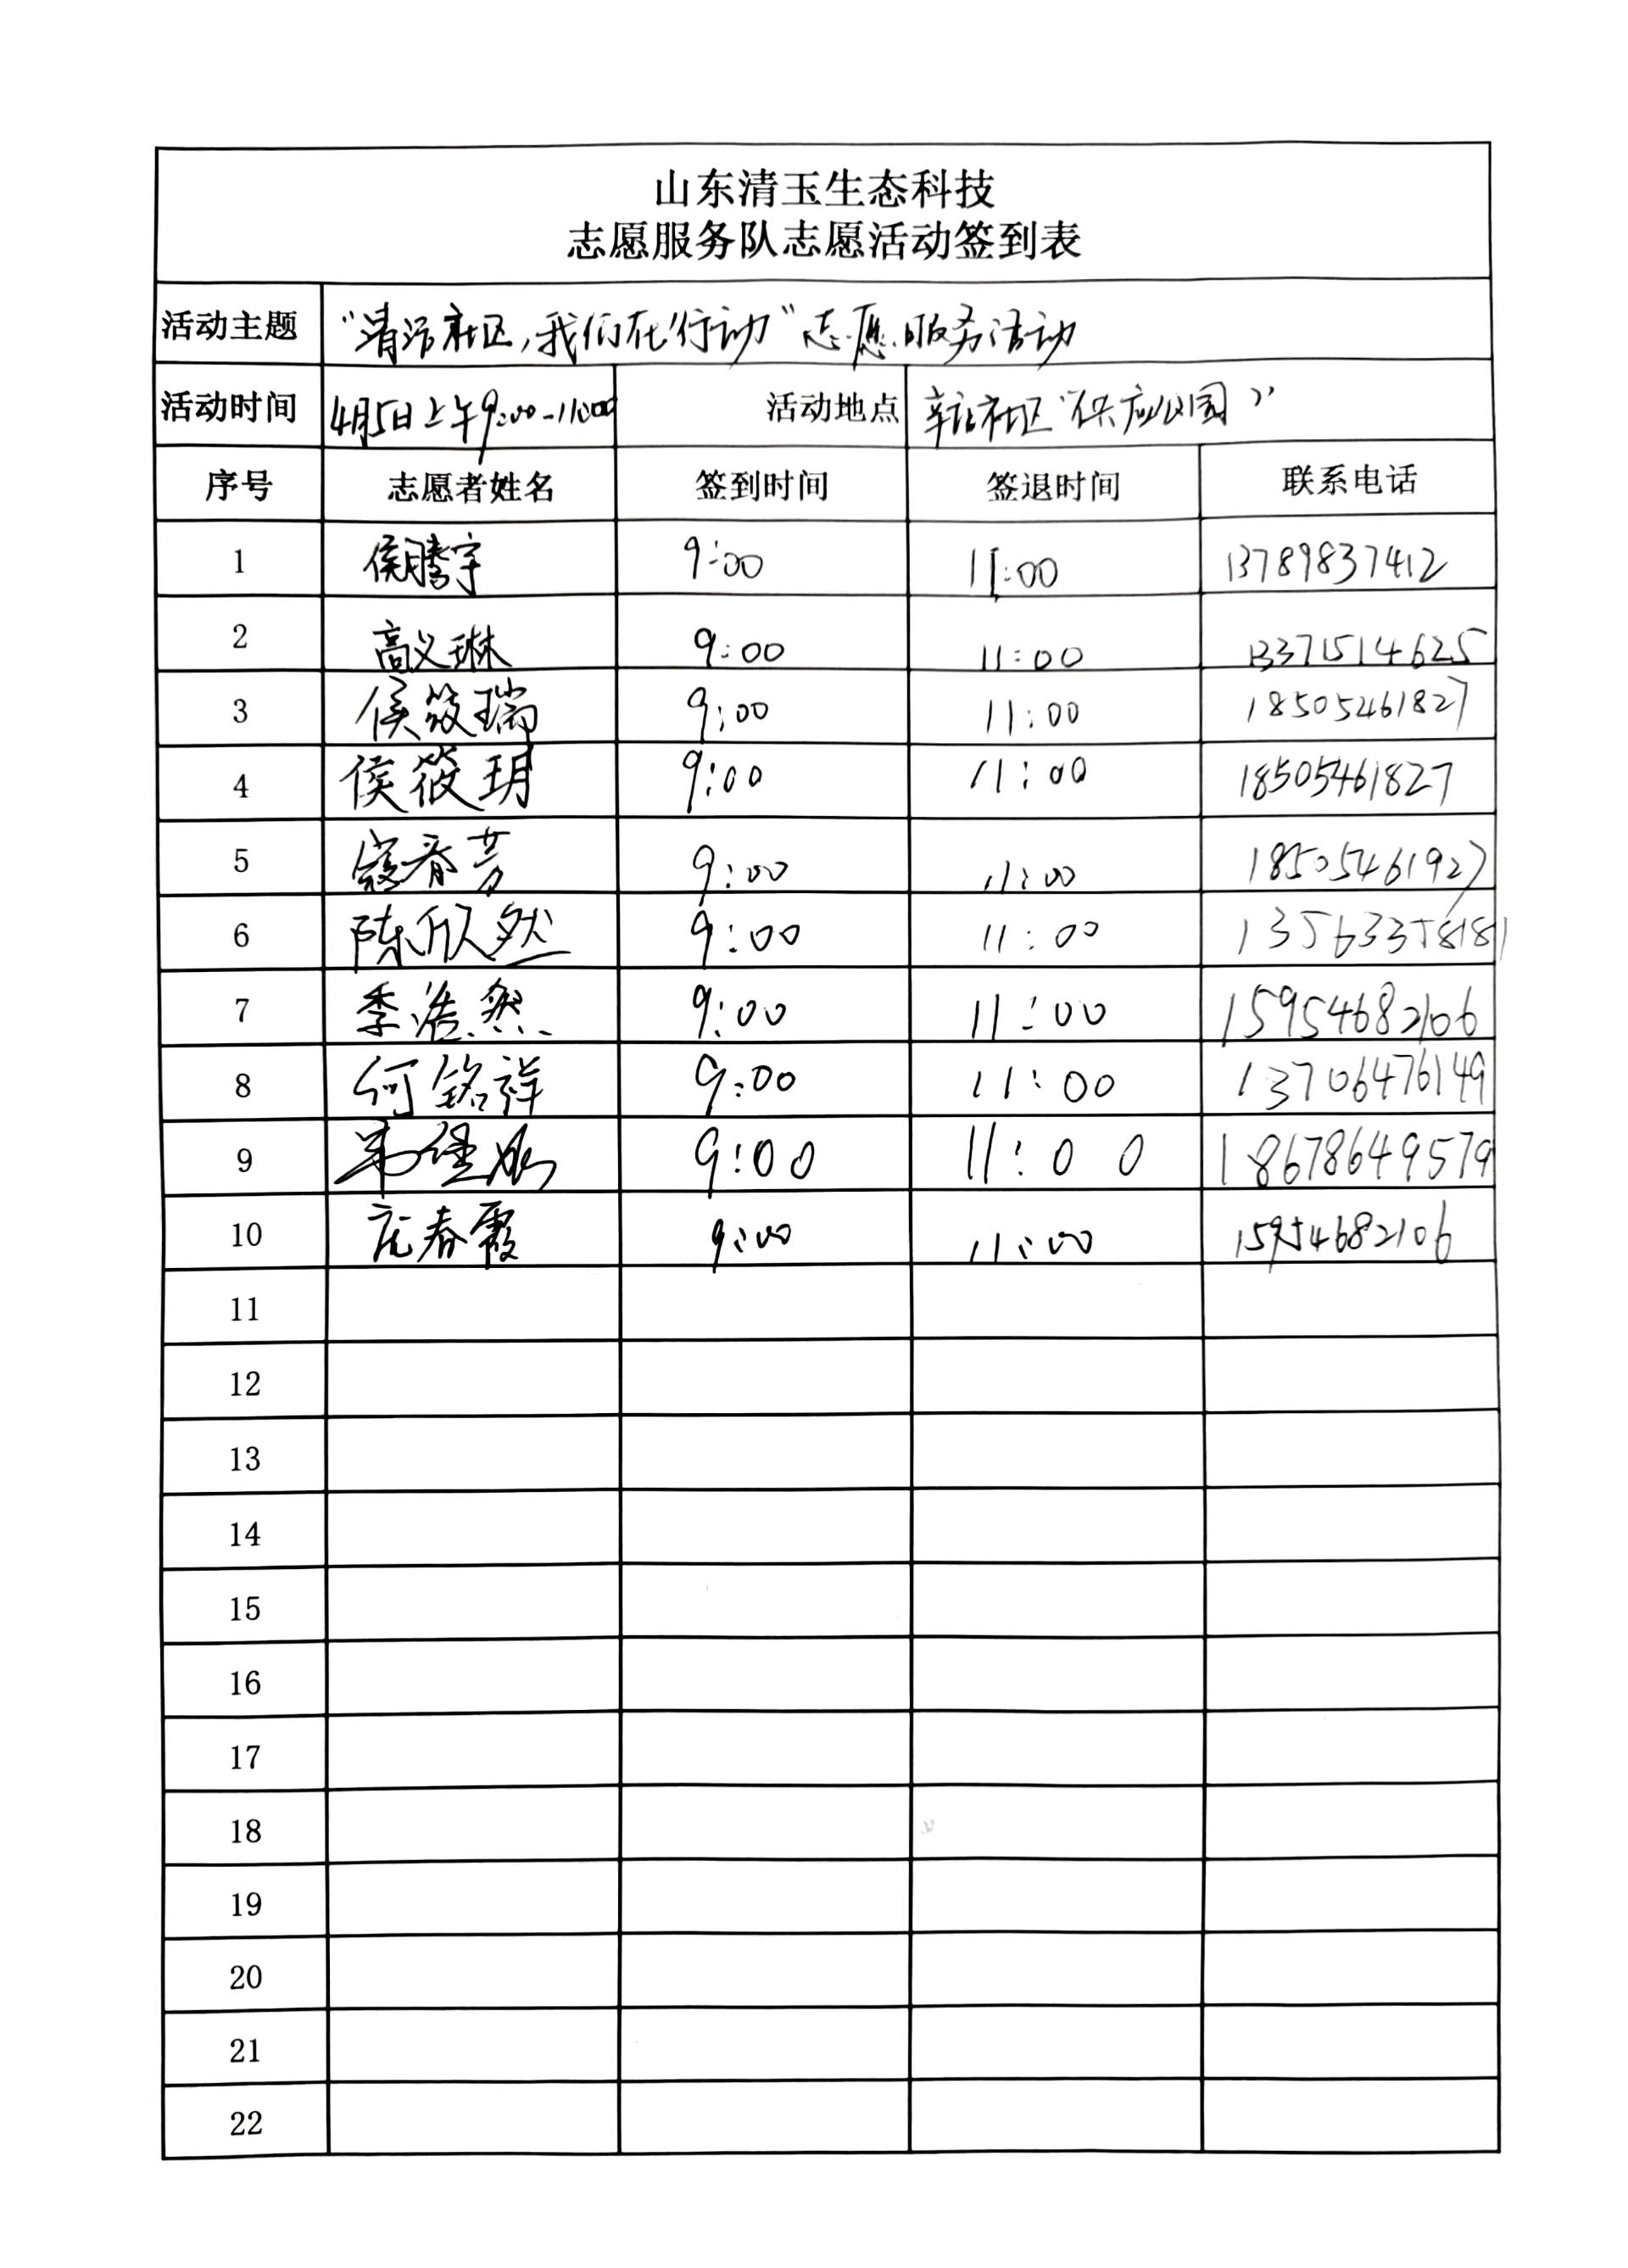 山东清玉生态科技
志愿服务队志愿活动签到表
活动主题 “清洁社区,我们在行动”志愿服务活动
活动时间 4月5日上午9:00-11:00 活动地点 社区“供应公园”
序号 志愿者姓名 签到时间 签退时间 联系电话
1 侯腾宇 9:00 11:00 13789837412
2 高义琳 9:00 11:00 13371514625
3 侯筱瑞 9:00 11:00 18505461827
4 侯筱玥 9:00 11:00 18505461827
5 寇春芳 9:00 11:00 18505461927
6 陈欣然 9:00 11:00 13563358181
7 季浩然 9:00 11:00 15954682106
8 何铭祥 9:00 11:00 13706476149
9 9:00 11:00 18678649579
10 庞春霞 9:00 11:00 15954682106
11
12
13
14
15
16
17
18
19
20
21
22